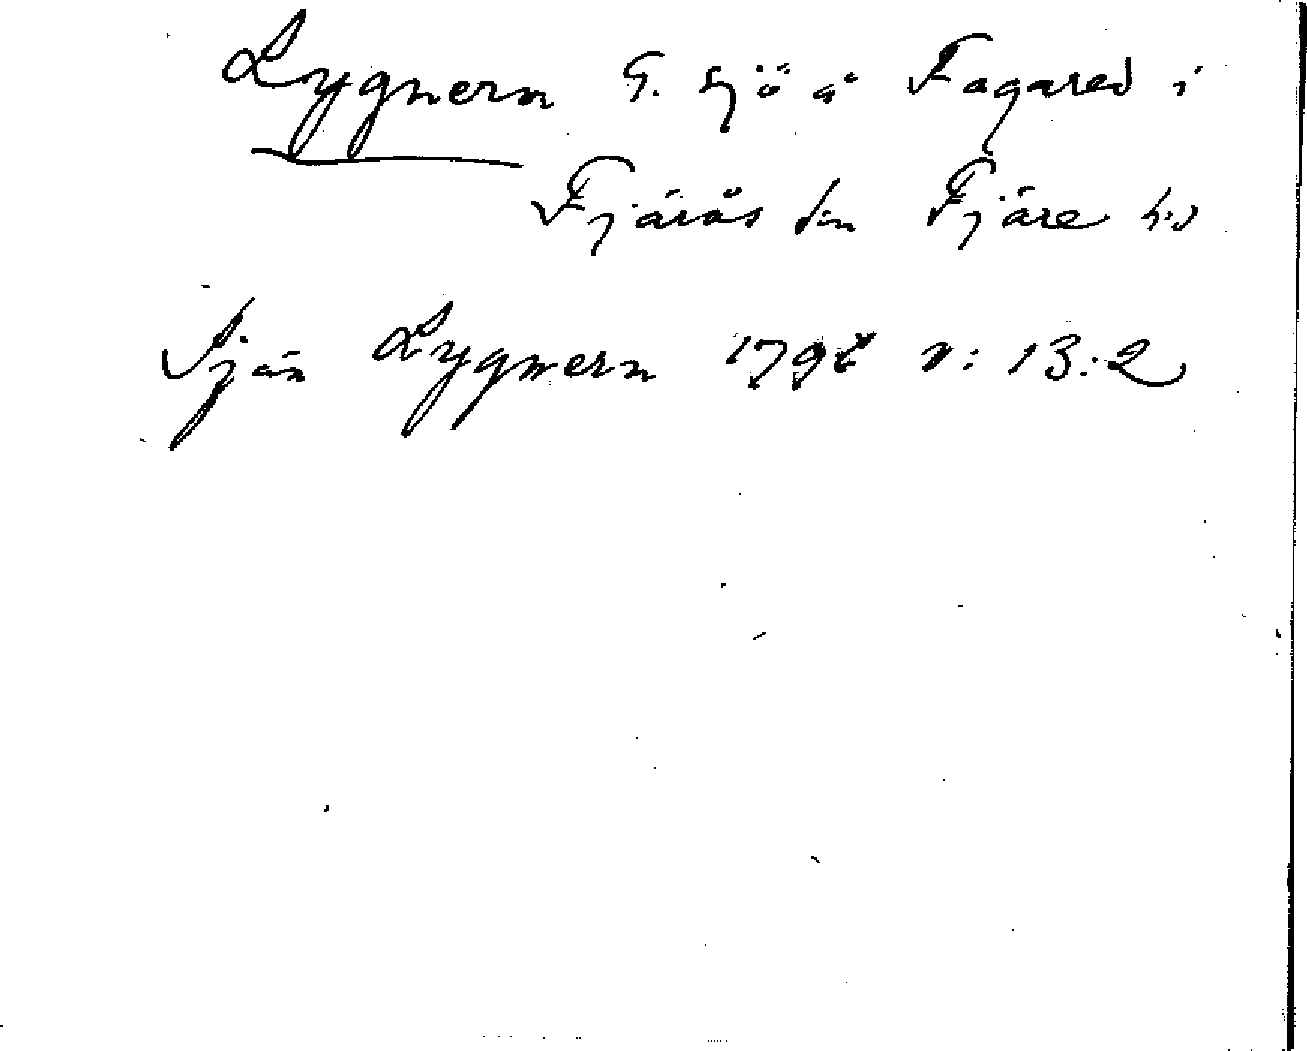 Lygnern G. sjö å Fagared i
Fjärås sn Fjäre hd
Sjön Lygnern 179 v: 13:2